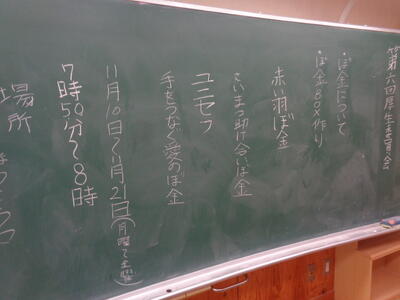 第六回厚生委員会
ぼ金について
ぼ金BOX作り
赤い羽ぼ金
さいまつ助け合いぼ金
ユニセフ
手をつなぐ愛のぼ金
11月10日〜11月21日(月曜〜土曜)
7時50分〜8時
場所